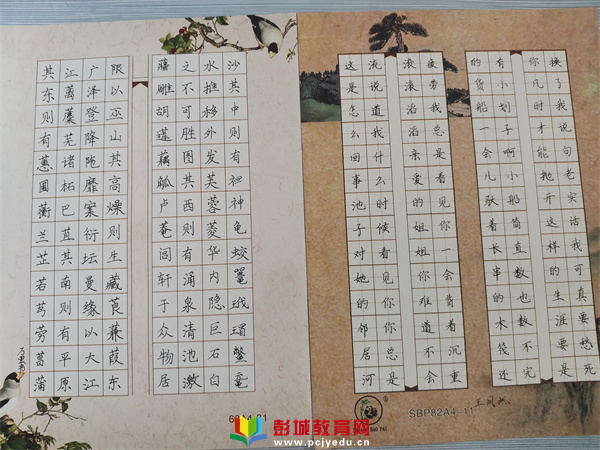 其东则有蕙圃衡兰芷若芎䓖菖蒲
江蓠蘪芜诸柘巴苴其南则有平原
广泽登降陁靡案衍坛曼缘以大江
限以巫山其高燥则生藏莨蒹葭东
蔷雕胡莲藕觚卢菴闾轩于众物居
之不可胜图其西则有涌泉清池激
水推移外发芙蓉菱华内隐巨石白
沙其中则有神龟蛟鼍玳瑁鳖鼋
这是怎么回事池子对她的邻居河
流说道我什么时候看见你你总是
滚滚滔滔亲爱的姐姐你难道不会
疲劳我总是看见你一会背着沉重
的货船一会儿驮着长串的木筏还
有小划子啊小船简直数也数不完
你几时才能抛开这样的生涯要是
换了我说句老实话我可真要愁死
SBP82A4-11
彭城教育网
www.pcjyedu.cn